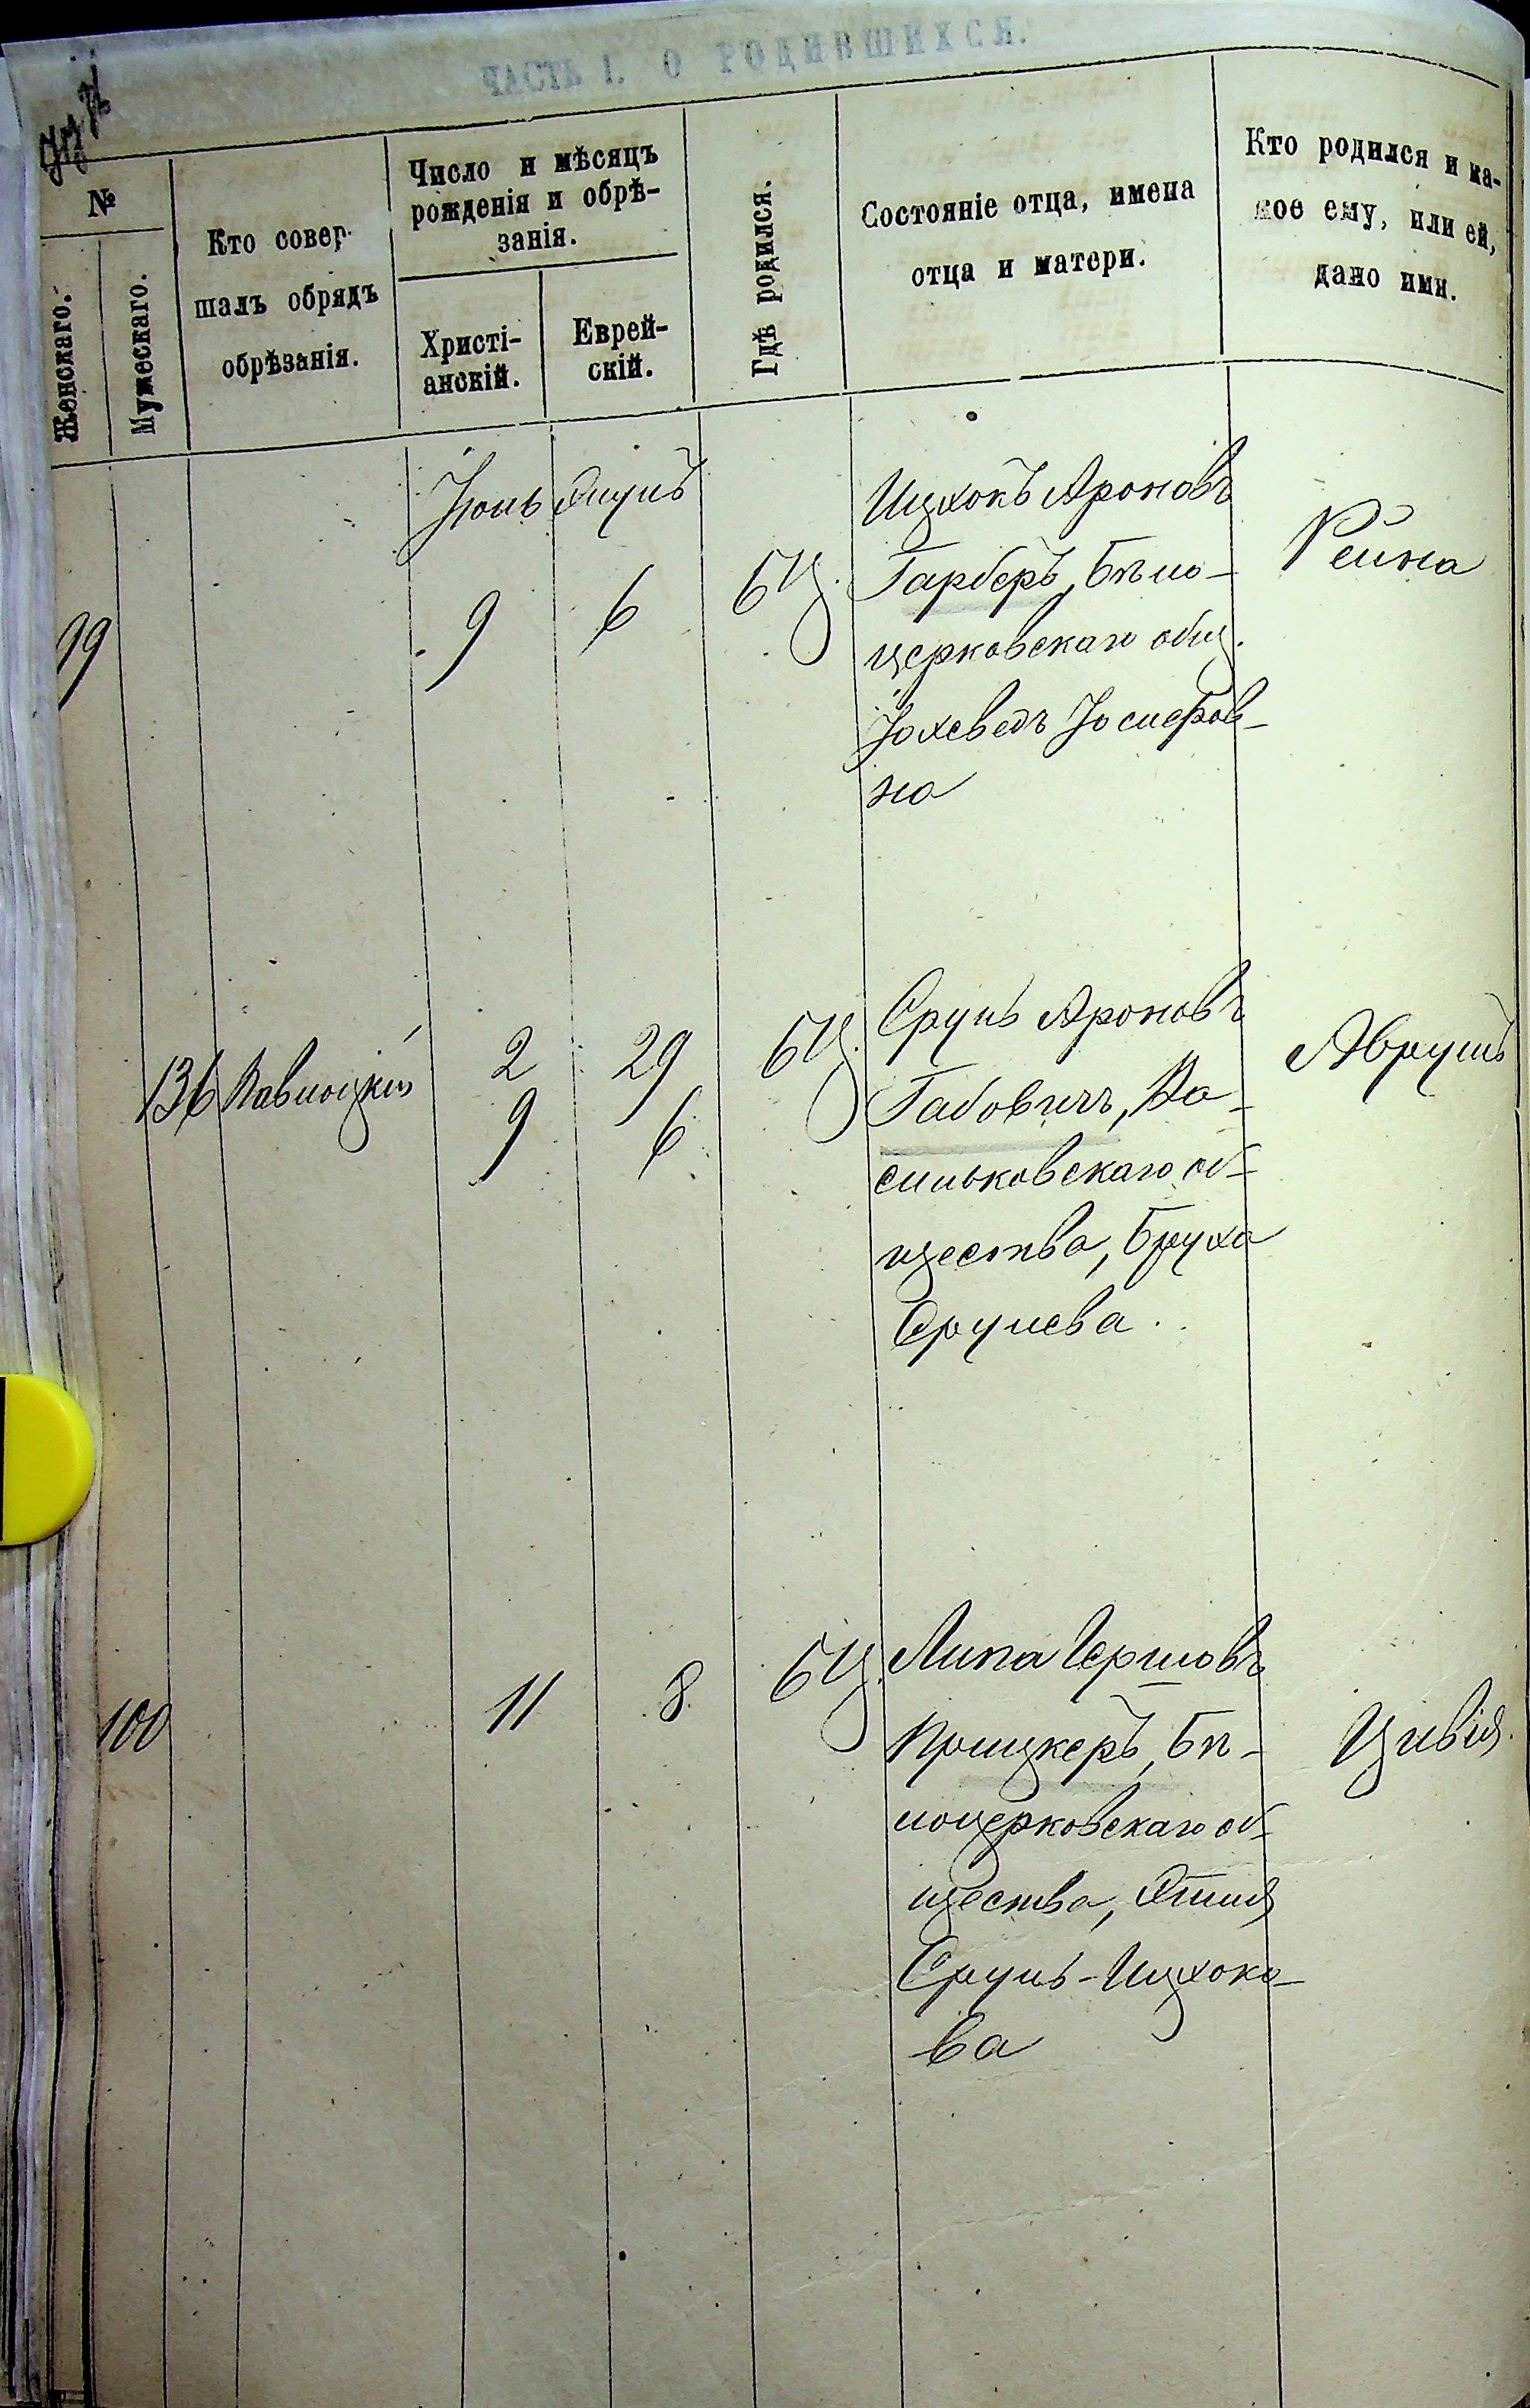 ЧАСТЬ I. О РОДИВШИХСЯ.
№
Женскаго.
Мужескаго.
Кто совер-
шалъ обрядъ
обрѣзанія.
Число и мѣсяцъ
рожденія и обрѣ-
занія.
Христі-
анскій.
Еврей-
скій.
Гдѣ родился.
Состояніе отца, имена
отца и матери.
Кто родился и ка-
кое ему, или ей,
дано имя.
Іюль
99
9
6
БЦ.
Ицхокъ Ароновъ
Гарберъ, Бѣло-
церковскаго общ.
Іохеведъ Іосифов-
на
Рейза
136
2
29
9
6
БЦ.
Сруль Ароновъ
Габовичъ, Ва-
сильковскаго об-
щества, Бруха
Срулева.
Аврумъ
100
11
8
БЦ.
Липа Гершовъ
Прицкеръ, Бѣ-
лоцерковскаго об-
щества, Этля
Сруль-Ицхоко-
ва
Цивія.